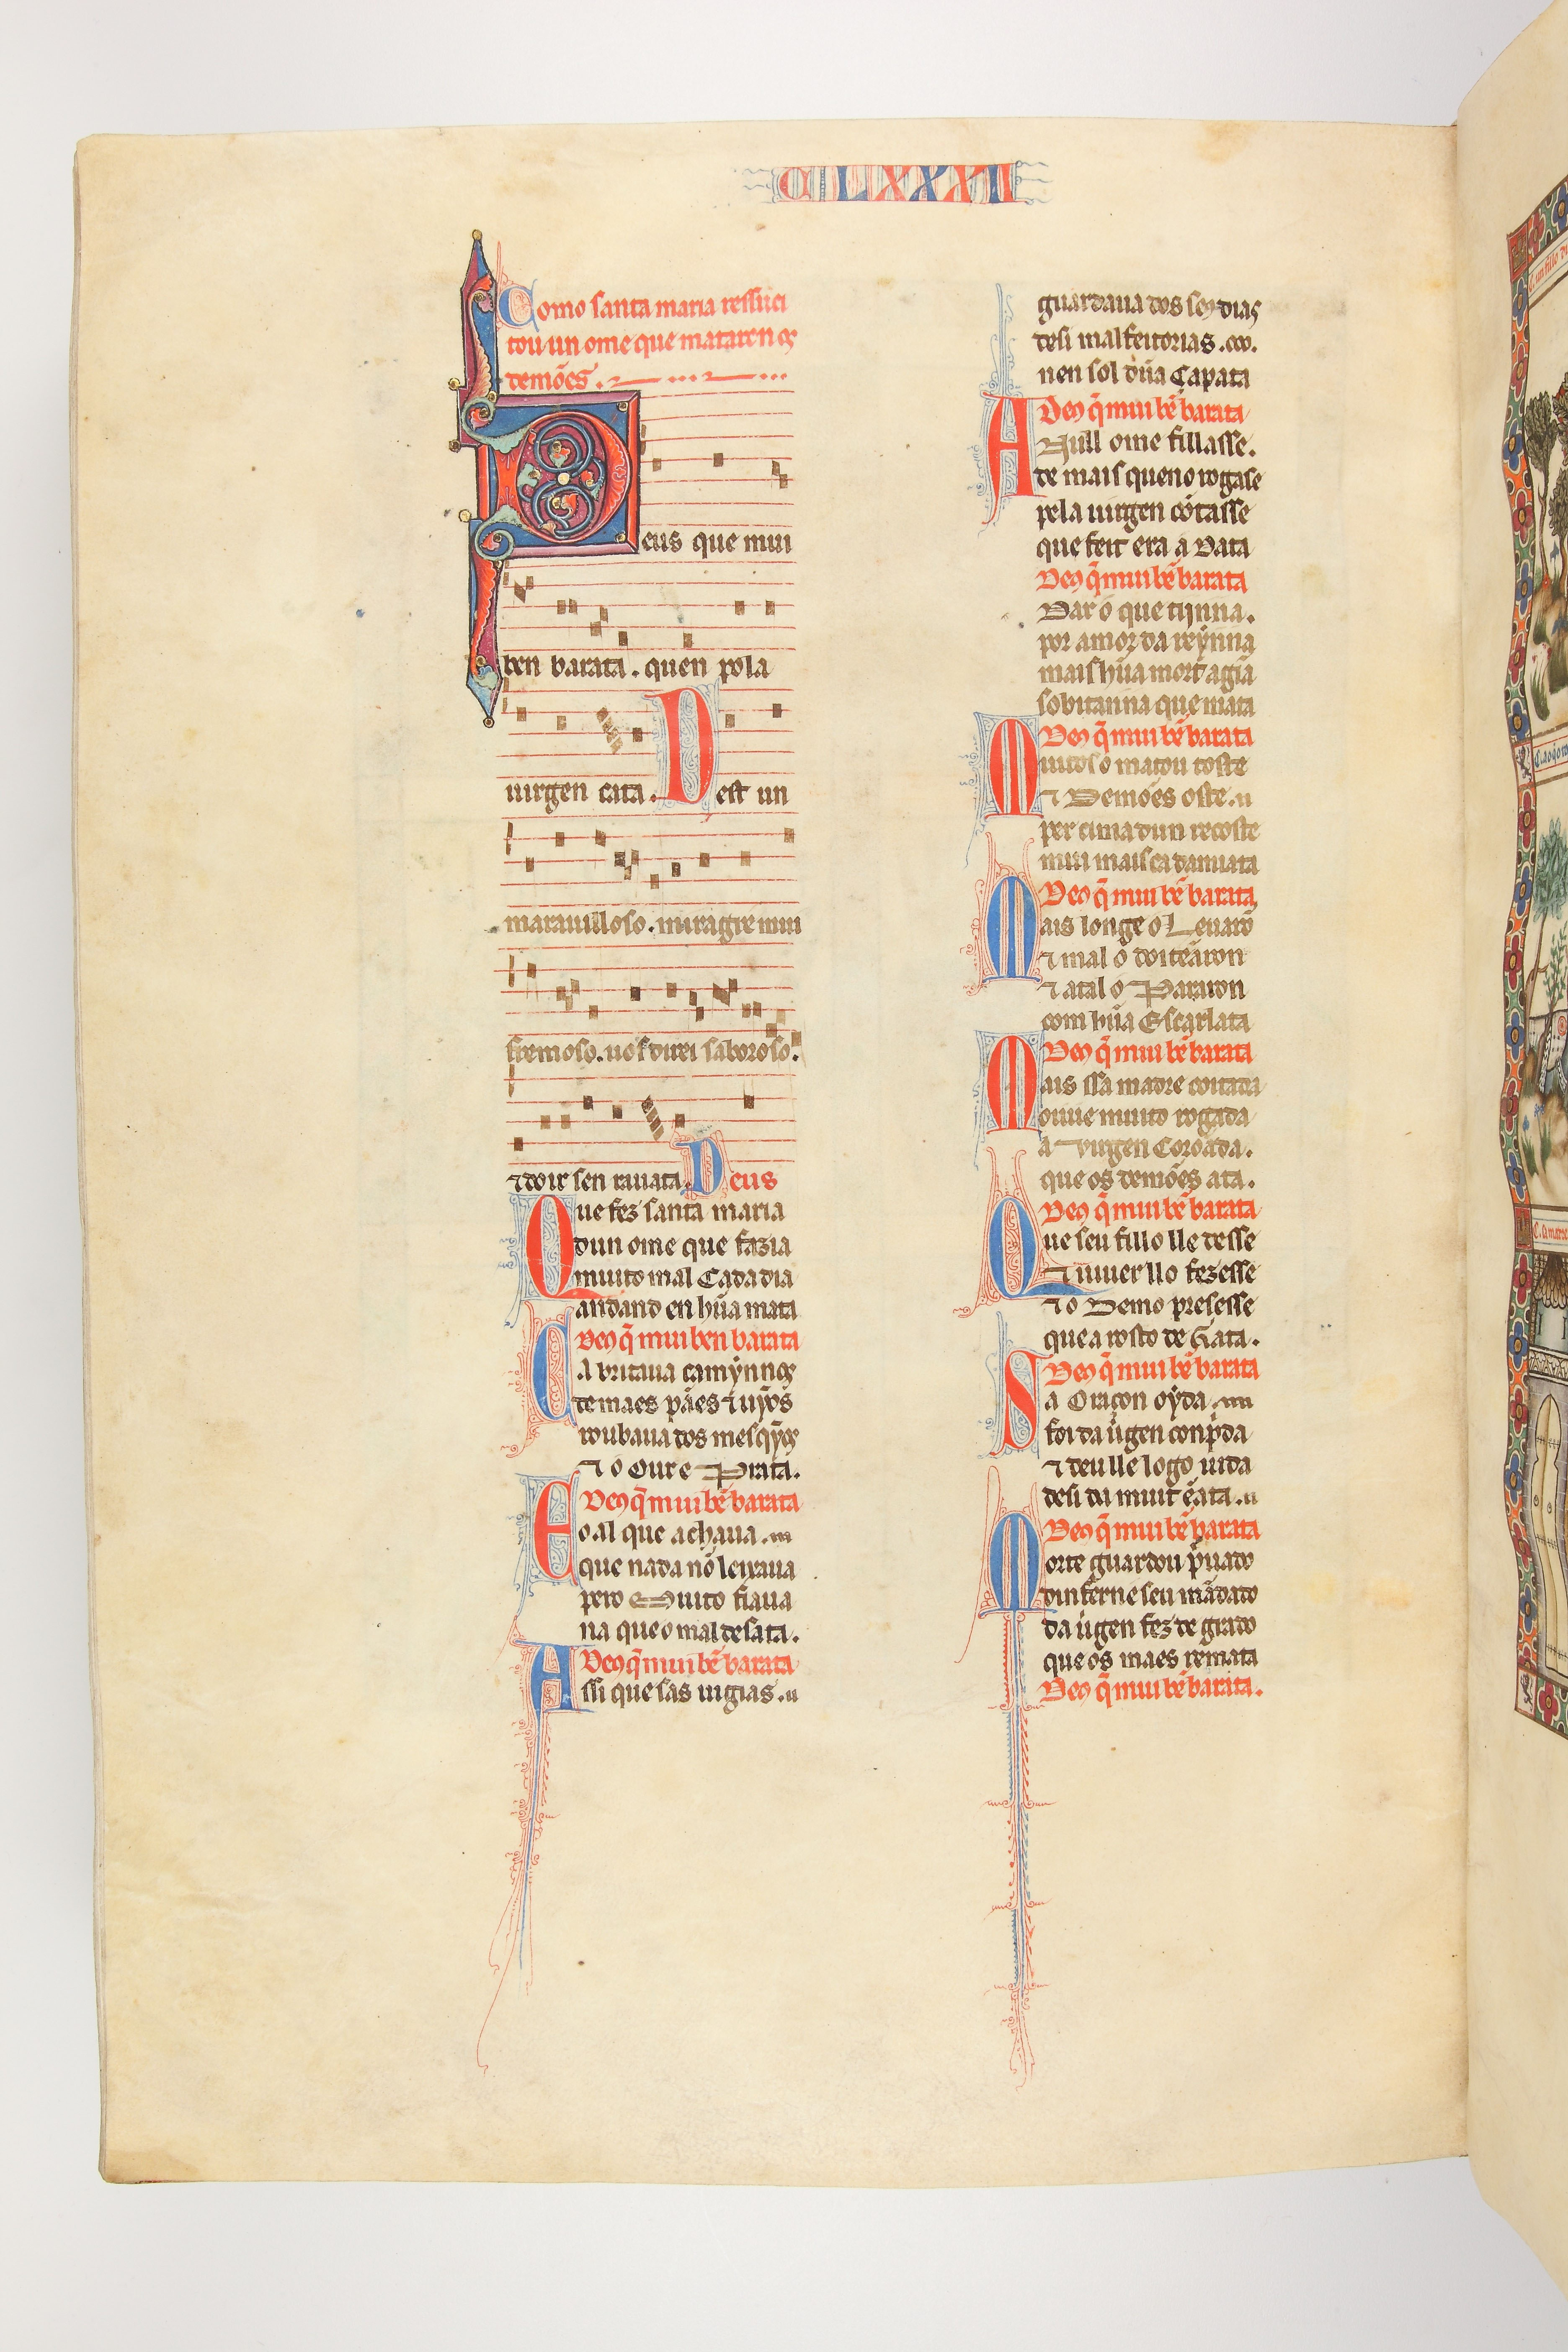 CLXXXII
Como santa maria ressuci
tou un ome que mataren os
demões.
Deus que mui
ben barata. quen pola
uirgen cata. Dest un
marauilloso. miragre mui
fremoso. uos direi saboroso.
⁊ doir sen rauata. Deus
Que fez santa maria
dun ome que fazia
muito mal Cada dia
andand en hũa mata
Deꝯ q̃ mui ben barata
Ca britaua camỹnnos
de maes pães ⁊ uỹos
roubaua dos mesqỹos
⁊ o Our e Prata.
Deꝯ q̃ mui bẽ barata
E o al que achaua.
que nada nõ leixaua
pero Muito fiaua
na que o mal desata.
Deꝯ q̃ mui bẽ barata
Assi que sas uigias.
guardaua dos seꝯ dias
desi malfeitorias.
nen sol dũa Çapata
Deꝯ q̃ mui bẽ barata
A Null ome fillasse.
de mais queno rogase
pela uirgen cõtasse
que feit era a Data
Deꝯ q̃ mui bẽ barata
Dar o que tijnna.
por amor da reỹnna
mais hũa mort agiã
sobitanna que mata
Deꝯ q̃ mui bẽ barata
Muitos o matou toste
⁊ Demões oste.
per cima dun recoste
mui mais ca damuata
Deꝯ q̃ mui bẽ barata
Mais longe o Leuarõ
⁊ mal o doitearon
⁊ atal o Pararon
com hũa Escarlata
Deꝯ q̃ mui bẽ barata
Mais ssa madre coitada
ouue muito rogada
a Uirgen Coroada.
que os demões ata.
Deꝯ q̃ mui bẽ barata
Que seu fillo lle desse
⁊ uiuer llo fezesse
⁊ o Demo presesse
que a rosto de Gata.
Deꝯ q̃ mui bẽ barata
Sa Oraçon oỹda.
foi da u̇gen conp̃da
⁊ deu lle logo uida
desi da muit ẽata.
Deꝯ q̃ mui bẽ barata
Morte guardou p̃uado
dinferne seu mãdado
da u̇gen fez de grado
que os maes remata
Deꝯ q̃ mui bẽ barata.